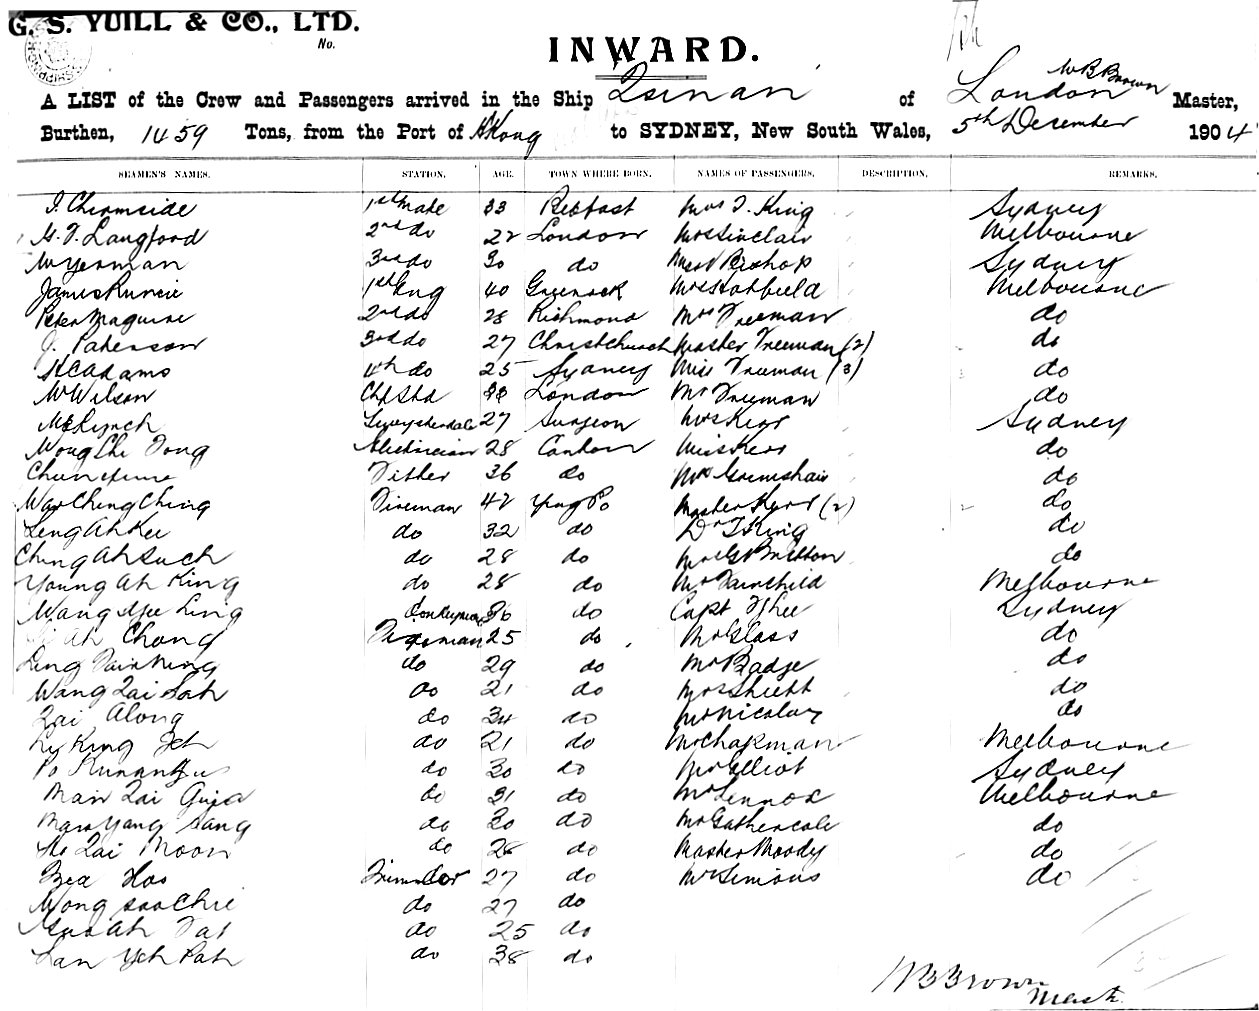 G. S. YUILL & CO., LTD.
No.
INWARD.
W B Brown
A LIST of the Crew and Passengers arrived in the Ship Tsinan of London Master,
Burthen, 1459 Tons, from the Port of HKong to SYDNEY, New South Wales, 5th December 1904
SEAMEN'S NAMES. STATION. AGE. TOWN WHERE BORN. NAMES OF PASSENGERS. DESCRIPTION. REMARKS.
J. Chirmside 1st Mate 33 Belfast Mrs J. King Sydney
G. F. Langford 2nd do 22 London Mr Sinclair Melbourne
W Yerman 3rd do 30 do Bishop Sydney
James Runcie 1st Eng 40 Greenock Mrs Hatfield Melbourne
Peter Maguire 2nd do 28 Richmond Mrs Freeman do
J. Paterson 3rd do 27 Christchurch Master Freeman (2) do
H C Adams 4th do 25 Sydney Miss Freeman (3) do
W Wilson Chf Std 33 London Mr Freeman do
M E Lynch 27 Surgeon Mrs Kerr Sydney
Wong Chi Tong Electrician 28 Canton Miss Kerr do
Chun Fitter 36 do Mrs Grimshaw do
War Ching Ching Fireman 42 Ying Po Master Kerr (2) do
Leng Ah Kee do 32 do Dr J King do
Ching Ah Such do 28 do Mr G Britton do
Young Ah King do 28 do Mr Fairchild Melbourne
Wang Mee Ling Donkeyman 36 do Capt Sydney
Ah Chong Fireman 25 do Mr Glass do
Ling do 29 do Mr Badge do
Wang Zai Sah do 21 do Mrs Shiett do
Zai Along do 34 do Mr Nicolay do
Ly King Jeh do 21 do Mr Chapman Melbourne
Po do 30 do Mr Elliot Sydney
Man Zai do 31 do Mr Lennox Melbourne
Maw Yang Sang do 30 do Mr Gathercole do
She Zai Moon do 28 do Master Moody do
Zea Hoo Trimmer do 27 do Mr Simons do
Wong Soo Chie do 27 do
Ah Tai do 25 do
Lan Yeh Pah do 38 do
W B Brown
Mast.